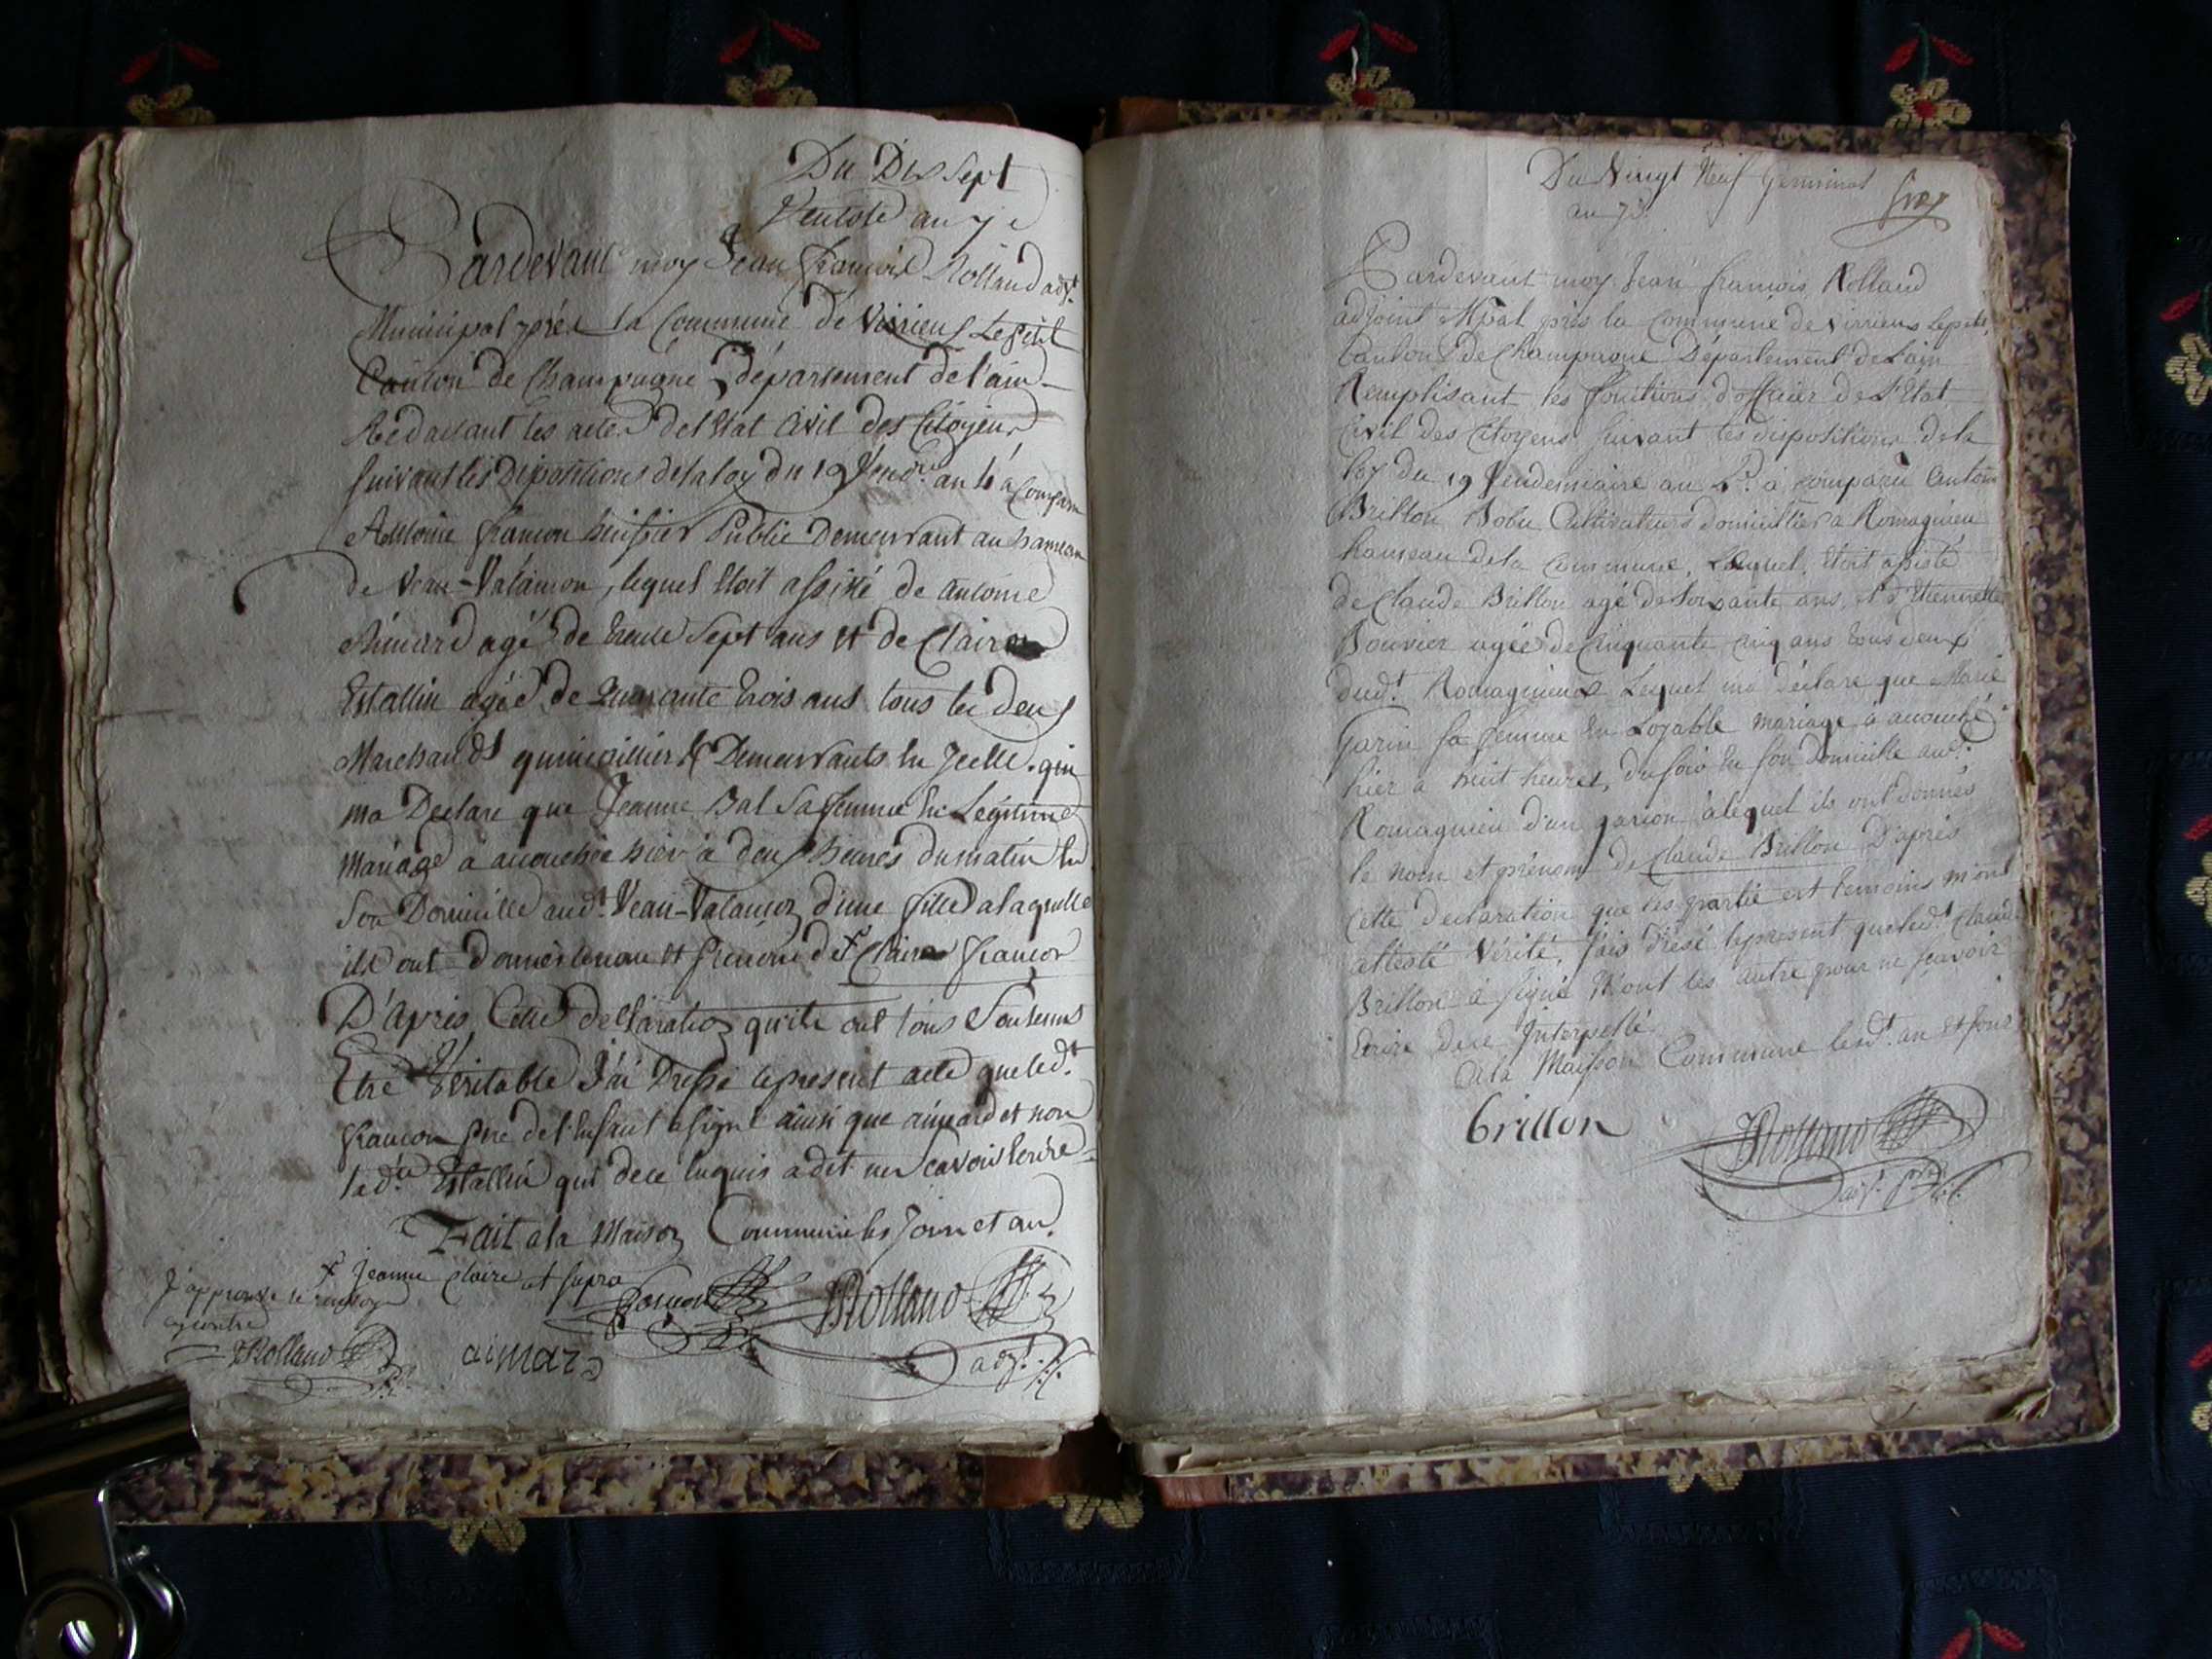 Du Dis Sept
Ventose an 7e
Pardevant moy Jean françois Rolland adjt
Municipal prés la Commune de Virrieux Le petit
Canton de Champagne, département de l'ain
Redactant les actes de l'Etat Civil des Citoyens
Suivant les dispositions de la loy du 19 Vendre an 4 a Comparu
Antoine françon huissier Public Demeurant au hameau
de Veau-Valançon, lequel etoit assisté de antoine
aimard agé de trente Sept ans et de Claire
Estallin agée de Quarante trois ans tous les deux
Marchands quincailliers Demeurants en Jcelle. qui
ma Declare que Jeanne Bal Sa femme En Legitime
Mariage à accouchée hier à deux heures du matin En
Son Domicille audt Veau-Valançon d'une fille a laquelle
ils ont donnés le nom et Prénom de x Claire françon
D'après Cette déClaration qu'ils ont tous Soutenus
Etre Véritable J'ai Dressé le present acte que ledt
françon pere de l'Enfant a signé ainsi que aimard et non
lad.te Estallin qui de ce Enquis a dit ne scavoir Ecrire
Fait a la Maison Commune les Jour et an
x Jeanne Claire et supra
J'approuve le renvoy
cy contre
Rolland
aimard
françon
JRolland
adjt
Du Vingt Neuf Germinal
an 7e
Pardevant moy Jean françois Rolland
adjoint Mpal près la Commune de Virrieux Lepetit,
Canton de Champagne Département de L'ain
Remplisant les fonctions d'officier de L'Etat
Civil des Citoyens Suivant les dispositions de la
loy du 19 Vendemiaire an 4e à comparu Antoine
Brillon Cultivateurs domicillier a Romagnieu
hameau de la Commune, Lequel, Etoit assisté
de Claude Brillon agé de Soixante ans, et d'Etiennette
Bouvier agée de Cinquante Cinq ans tous deux
dudt Romagnieux Lequel ma déclare que Marie
Garin Sa femme En Loyable mariage à accouché
hier à huit heures, du soir En son Domicille audt
Romagnieu d'un garçon àlequel ils ont donnés
le nom et prénom de Claude Brillon D'après
Cette declaration que les partie est temoins m'ont
attesté Vérité, J'ais dresé le present que led.t Claude
Brillon à signé N'ont les autre pour ne scavoir
Ecrire de ce Jnterpellé.
A la Maisson Commune lesdt an et Jour
brillon
JRolland
adjt